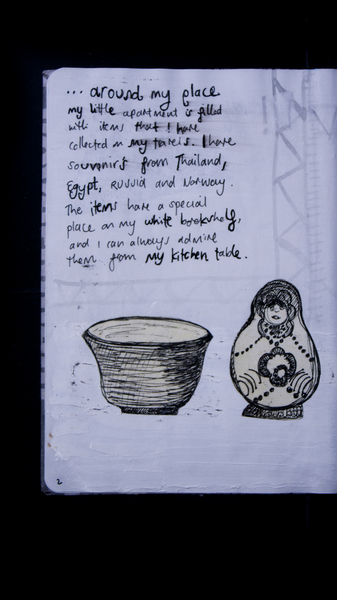 ... around my place
my little apartment is filled
with items that I have
collected on my travels. I have
souvenirs from Thailand,
Egypt, RUSSIA and Norway.
The items have a special
place on my white bookshelf,
and I can always admire
them from my kitchen table.
2